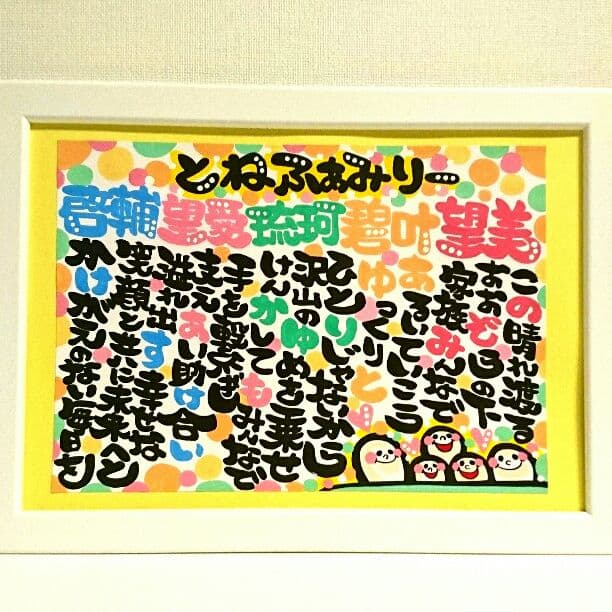 とねふぁみりー
啓輔 望愛 琉珂 碧叶 望美
この晴れ渡る
おおぞらの下
家族みんなで
あるいていこう
ゆっくりと
ひとりじゃないから
沢山のゆめを乗せ
けんかしてもみんなで
手を繋ぎ
支えあい助け合い
溢れ出す幸せな
笑顔と共に未来へ
かけがえのない毎日を